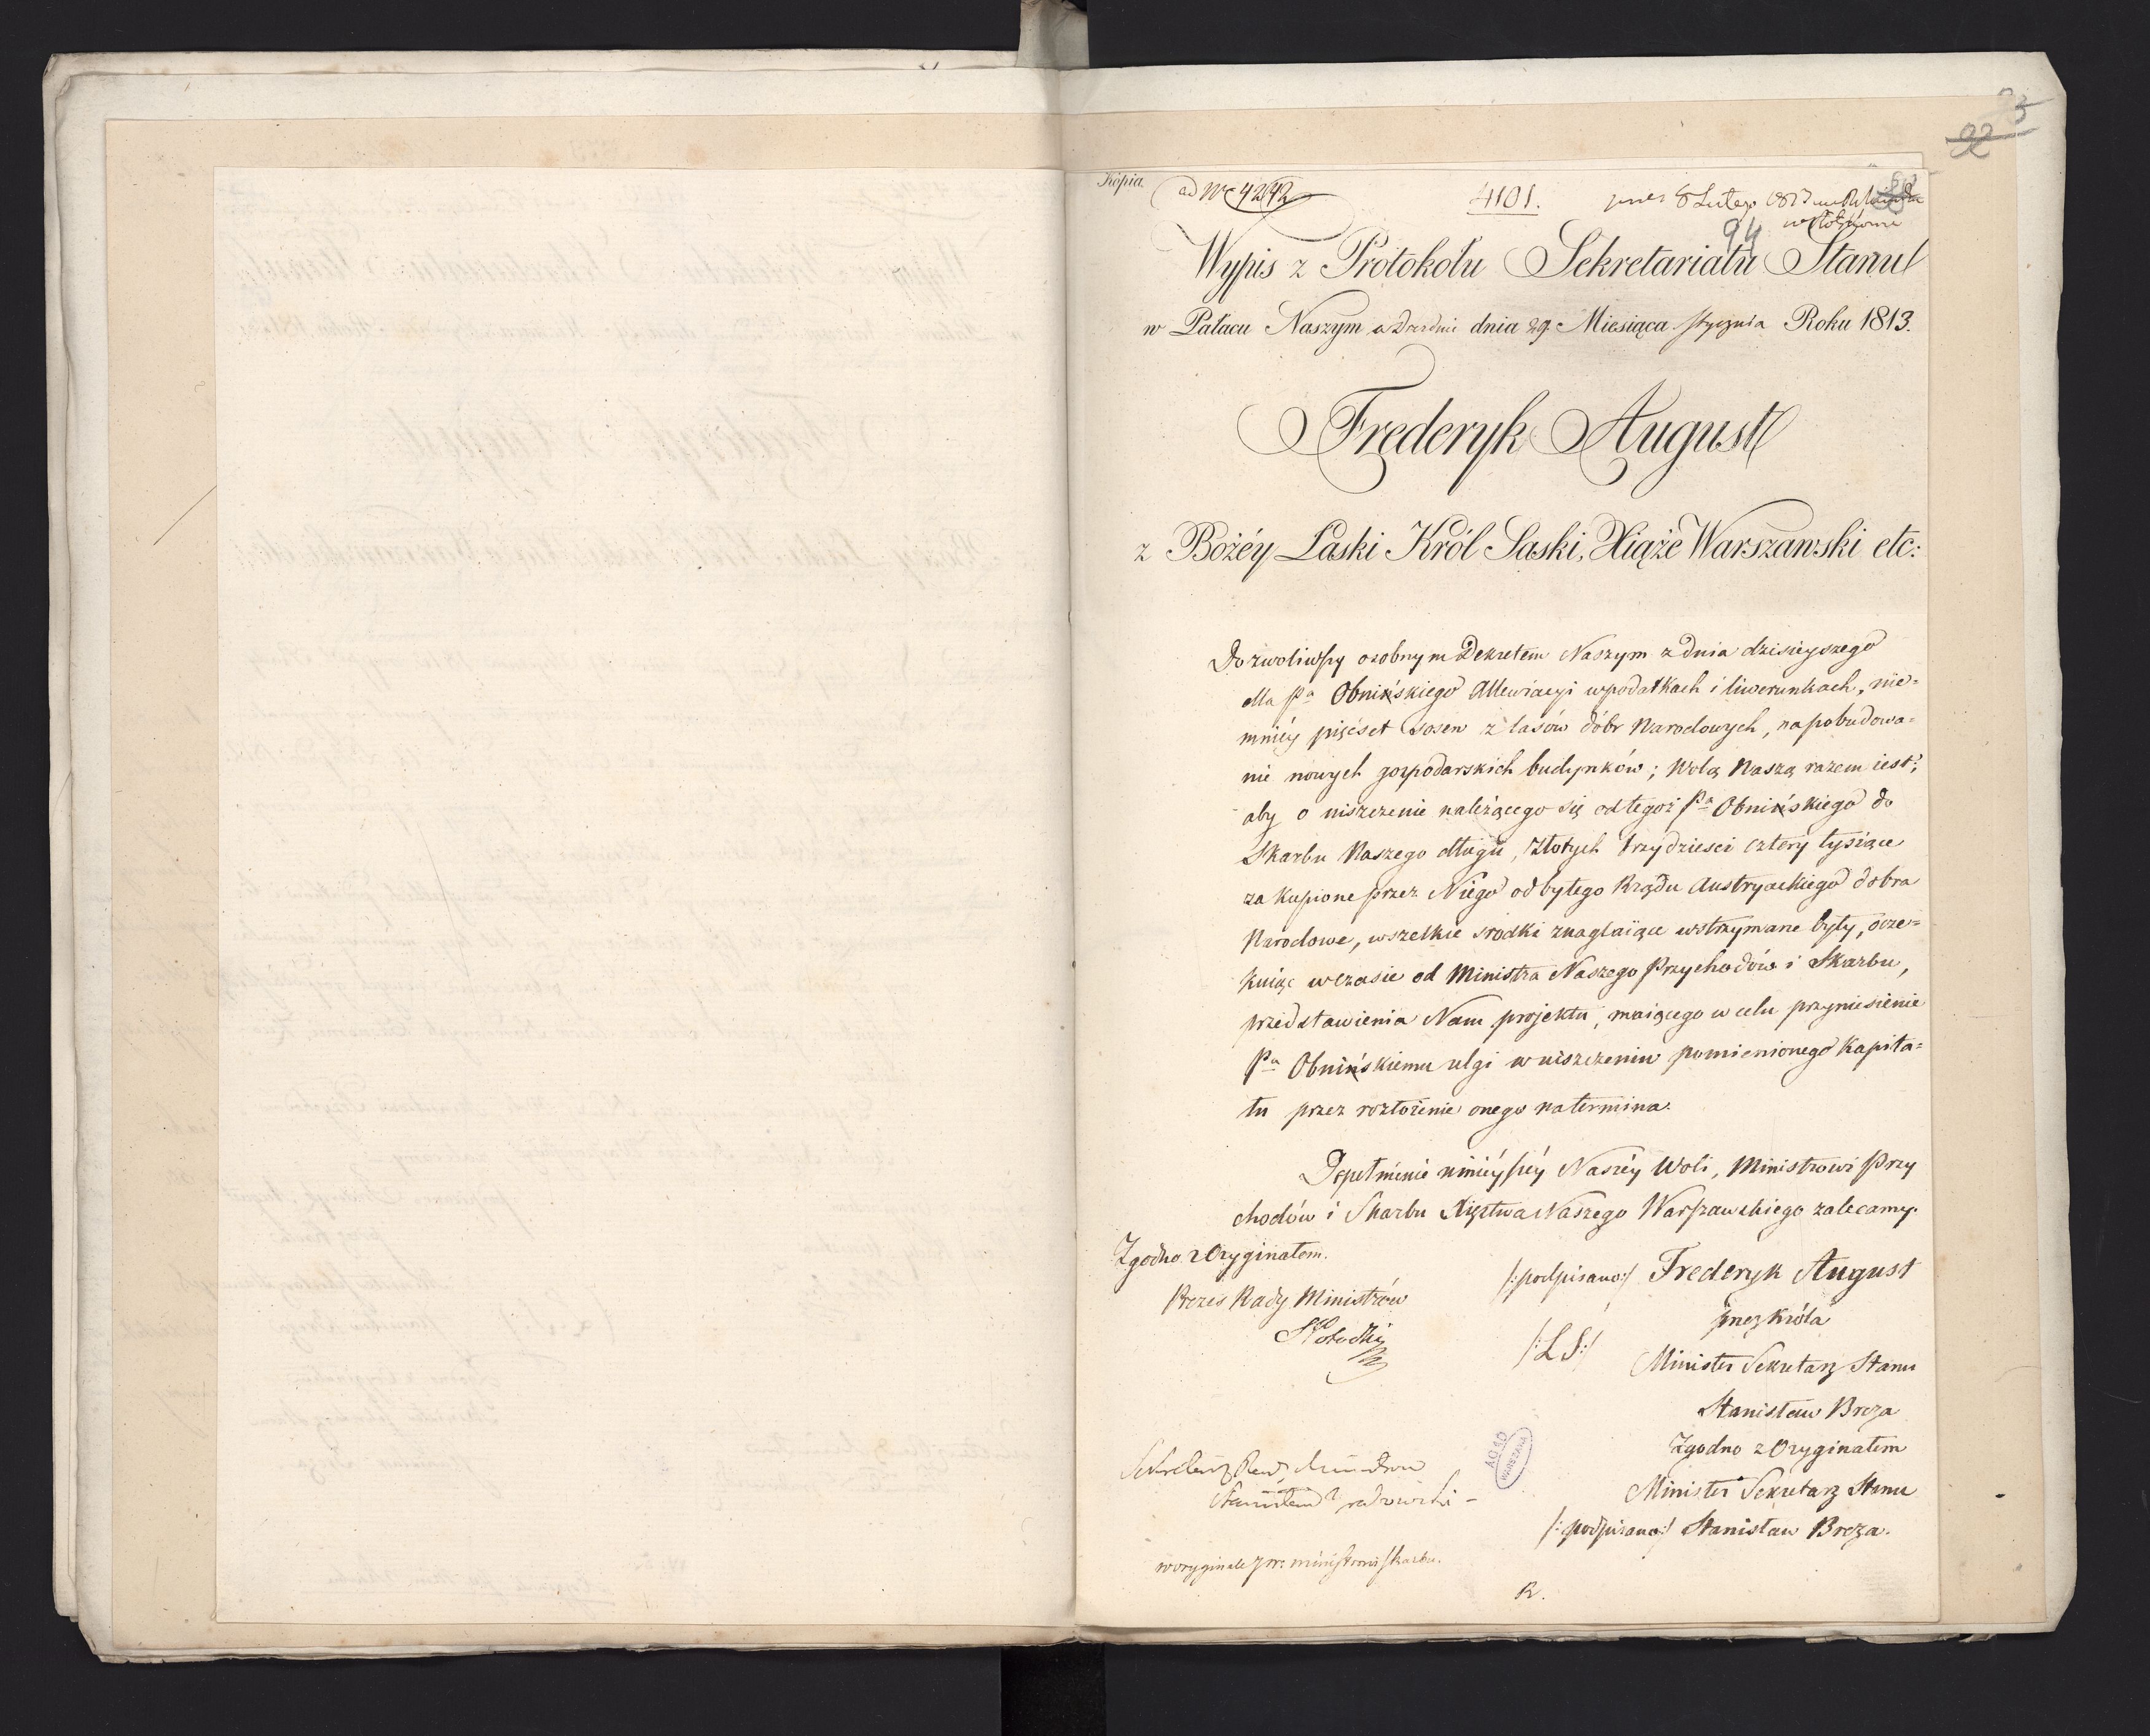 93
92
Kopia.
ad Nro 4242
4101.
pres 8 Lutego 1813
94
Wypis z Protokołu Sekretariatu Stanu
w Pałacu Naszym w Dreźnie dnia 29. Miesiąca stycznia Roku 1813.
Frederyk August
z Bożéy Łaski Król Saski, Xiąże Warszawski etc:
Dozwoliwszy osobnym Dekretem Naszym z dnia dzisieyszego
dla Pa Obnińskiego allewiacyi w podatkach i liwerunkach, nie=
mniéy pięćset sosen z lasów dóbr Narodowych, na pobudowa=
nie nowych gospodarskich budynków; Wolą Naszą razem iest;
aby o uiszczenie należącego się od tegoż Pa Obnińskiego do
Skarbu Naszego długu, Złotych trzydzieści cztery tysiące
za kupione przez Niego od byłego Rządu Austryackiego dobra
Narodowe, wszelkie srodki znaglaiące wstrzymane były, ocze=
kuiąc w czasie od Ministra Naszego Przychodów i Skarbu,
przedstawienia Nam projektu, maiącego w celu przyniesienie
Pu Obnińskiemu ulgi w uiszczeniu pomienionego Kapita=
łu przez rozłożenie onego na termina.
Dopełnienie ninieyszéy Naszéy Woli, Ministrowi Przy
chodów i Skarbu Xięstwa Naszego Warszawskiego zalecamy.
Zgodno z Oryginałem.
Prezes Rady Ministrów
/:podpisano:/ Frederyk August
przez Króla
/:L S:/
Minister Sekretarz Stanu
Stanisław Breza
Zgodno z Oryginałem
Minister Sekretarz Stanu
/:podpisano:/ Stanisław Breza.
Sekretarz Rady Ministrów
AGAD
WARSZAWA
w oryginale
R.